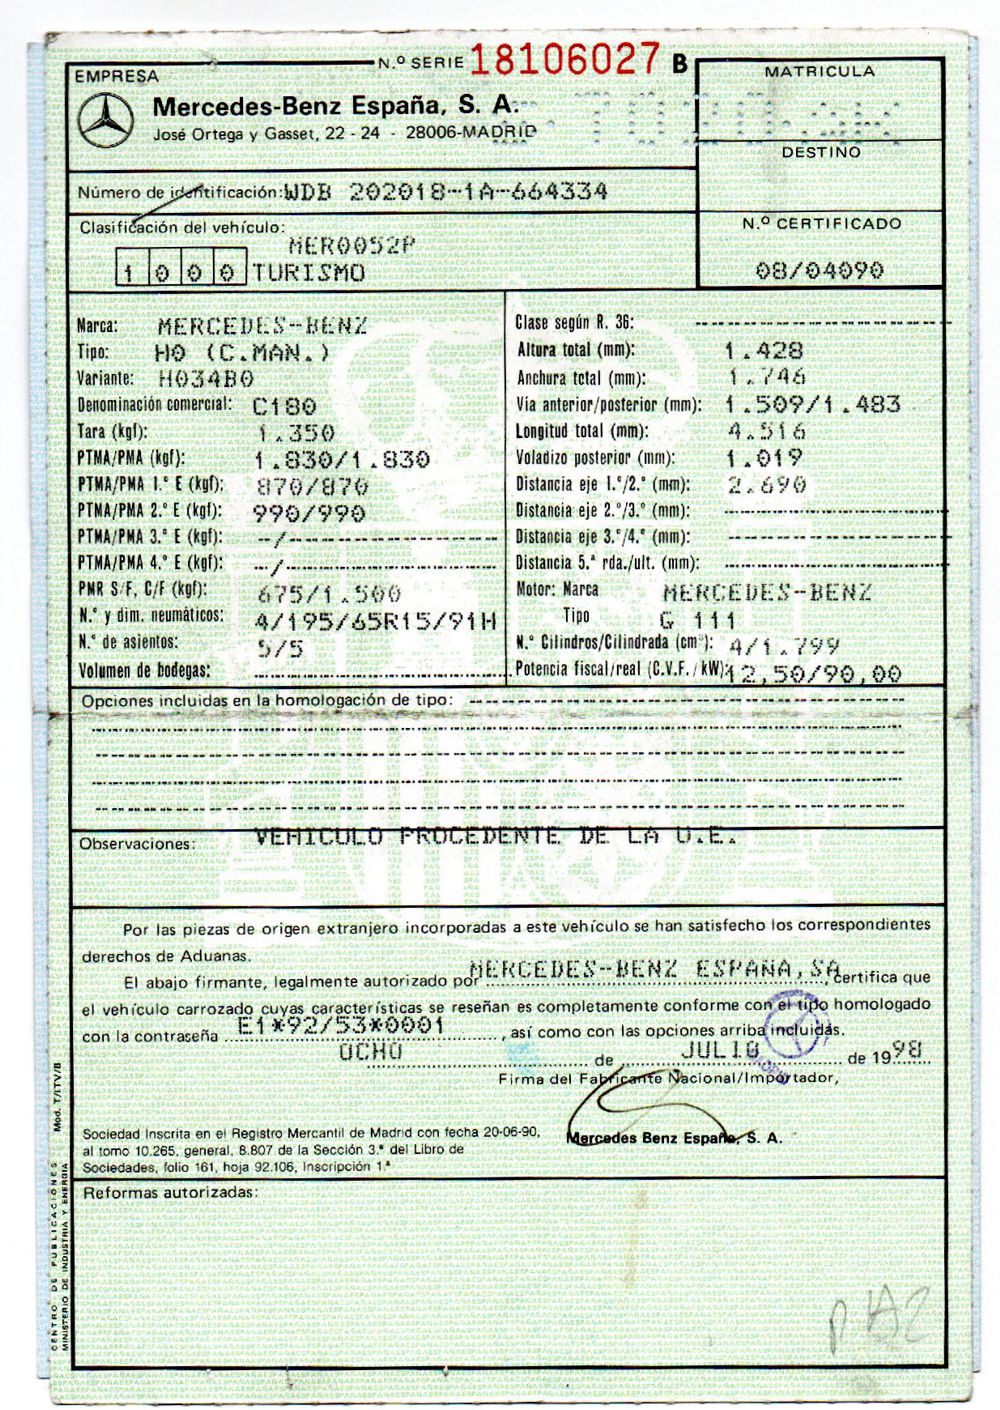 N.º SERIE 18106027 B
EMPRESA
Mercedes-Benz España, S. A.
José Ortega y Gasset, 22 - 24 - 28006-MADRID
MATRICULA
DESTINO
Número de identificación: WDB 202018-1A-664334
Clasificación del vehículo:
MER0052P
1 0 0 0 TURISMO
N.º CERTIFICADO
08/04090
Marca: MERCEDES-BENZ
Tipo: H0 (C.MAN.)
Variante: H034B0
Denominación comercial: C180
Tara (kgf): 1.350
PTMA/PMA (kgf): 1.830/1.830
PTMA/PMA 1.º E (kgf): 870/870
PTMA/PMA 2.º E (kgf): 990/990
PTMA/PMA 3.º E (kgf): --/--------------------
PTMA/PMA 4.º E (kgf): --/--------------------
PMR S/F, C/F (kgf): 675/1.500
N.º y dim. neumáticos: 4/195/65R15/91H
N.º de asientos: 5/5
Volumen de bodegas: --------------------
Clase según R. 36: --------------------
Altura total (mm): 1.428
Anchura total (mm): 1.746
Via anterior/posterior (mm): 1.509/1.483
Longitud total (mm): 4.516
Voladizo posterior (mm): 1.019
Distancia eje 1.º/2.º (mm): 2.690
Distancia eje 2.º/3.º (mm): --------------------
Distancia eje 3.º/4.º (mm): --------------------
Distancia 5.ª rda./ult. (mm): --------------------
Motor: Marca MERCEDES-BENZ
Tipo G 111
N.º Cilindros/Cilindrada (cm³): 4/1.799
Potencia fiscal/real (C.V.F. / kW): 12,50/90,00
Opciones incluidas en la homologación de tipo: --------------------
Observaciones: VEHICULO PROCEDENTE DE LA U.E.
Por las piezas de origen extranjero incorporadas a este vehículo se han satisfecho los correspondientes
derechos de Aduanas.
El abajo firmante, legalmente autorizado por MERCEDES-BENZ ESPAÑA,SA, certifica que
el vehículo carrozado cuyas características se reseñan es completamente conforme con el tipo homologado
con la contraseña E1*92/53*0001, así como con las opciones arriba incluidas.
OCHO de JULIO de 1998
Firma del Fabricante Nacional/Importador,
Mercedes Benz España, S. A.
Sociedad Inscrita en el Registro Mercantil de Madrid con fecha 20-06-90,
al tomo 10.265, general, 8.807 de la Sección 3.ª del Libro de
Sociedades, folio 161, hoja 92.106, Inscripción 1.ª
Reformas autorizadas:
CENTRO DE PUBLICACIONES Mod. T/ITV/B
MINISTERIO DE INDUSTRIA Y ENERGIA